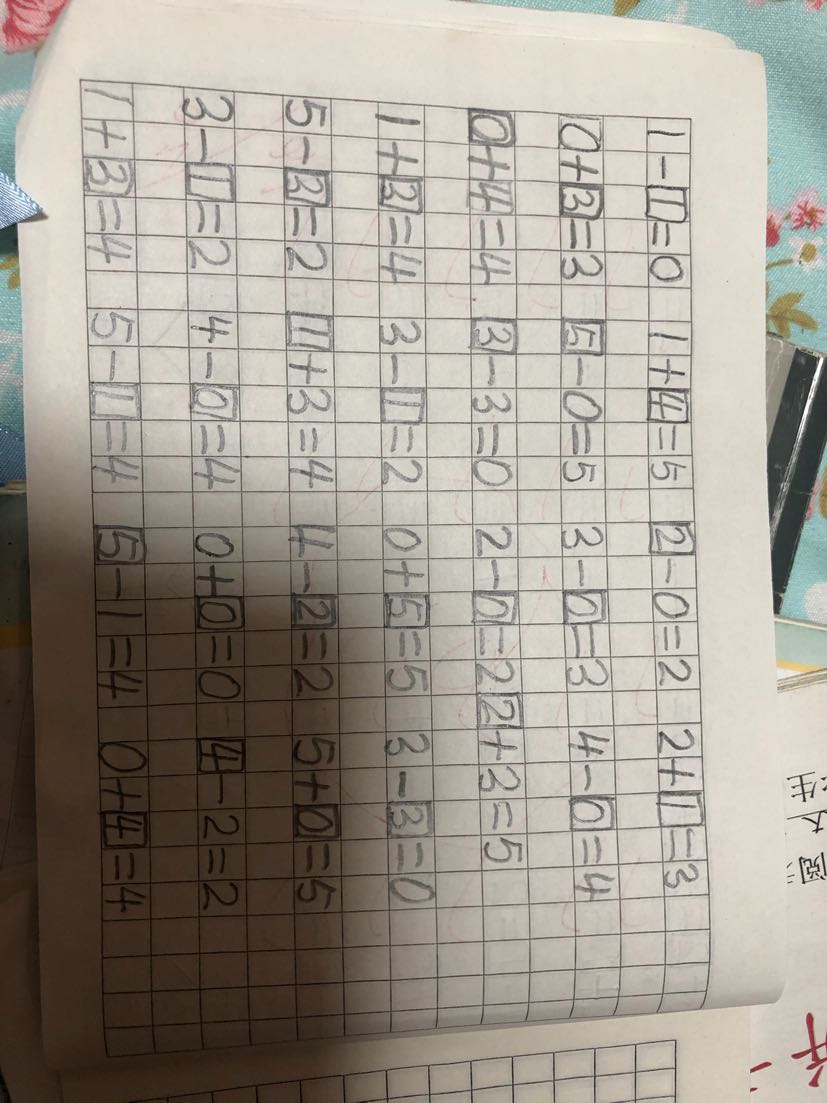 1-1=0 1+4=5 2-0=2 2+1=3
0+3=3 5-0=5 3-0=3 4-0=4
0+4=4 3-3=0 2-0=2 2+3=5
1+3=4 3-1=2 0+5=5 3-3=0
5-3=2 1+3=4 4-2=2 5+0=5
3-1=2 4-0=4 0+0=0 4-2=2
1+3=4 5-1=4 5-1=4 0+4=4